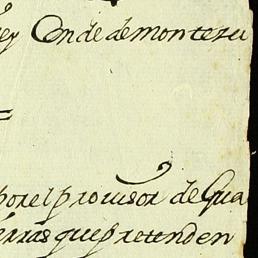 ey Conde demontezu
=
porel provisor de Gua
erras quepretenden